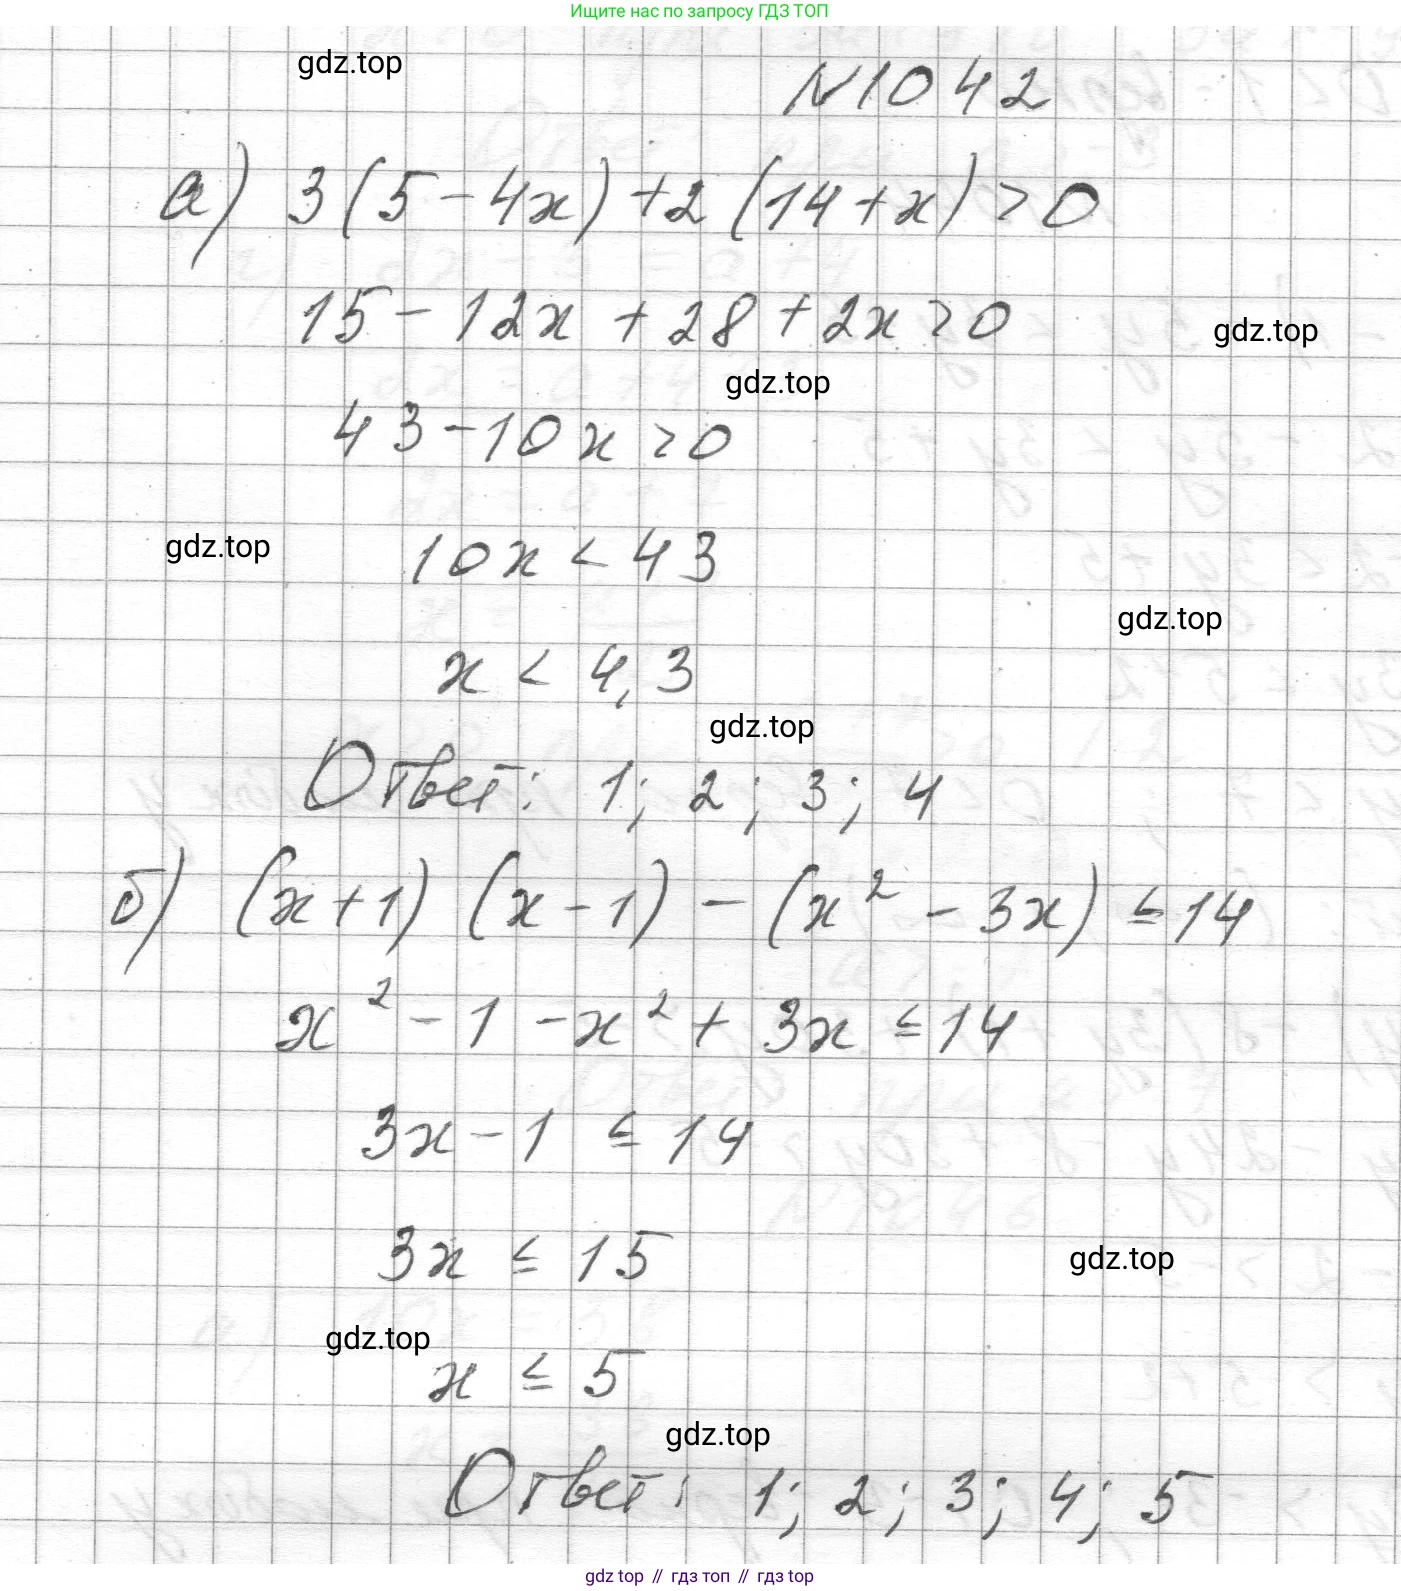 Ищите нас по запросу ГДЗ ТОП
gdz.top
N1042
а) 3(5-4x)+2(14+x)>0
15-12x+28+2x>0
gdz.top
gdz.top
43-10x>0
gdz.top
10x<43
gdz.top
x<4,3
gdz.top
Ответ: 1; 2; 3; 4
б) (x+1)(x-1)-(x²-3x)≤14
x²-1-x²+3x≤14
3x-1≤14
3x≤15
gdz.top
gdz.top
x≤5
gdz.top
Ответ: 1; 2; 3; 4; 5
gdz top // гдз топ // gdz top